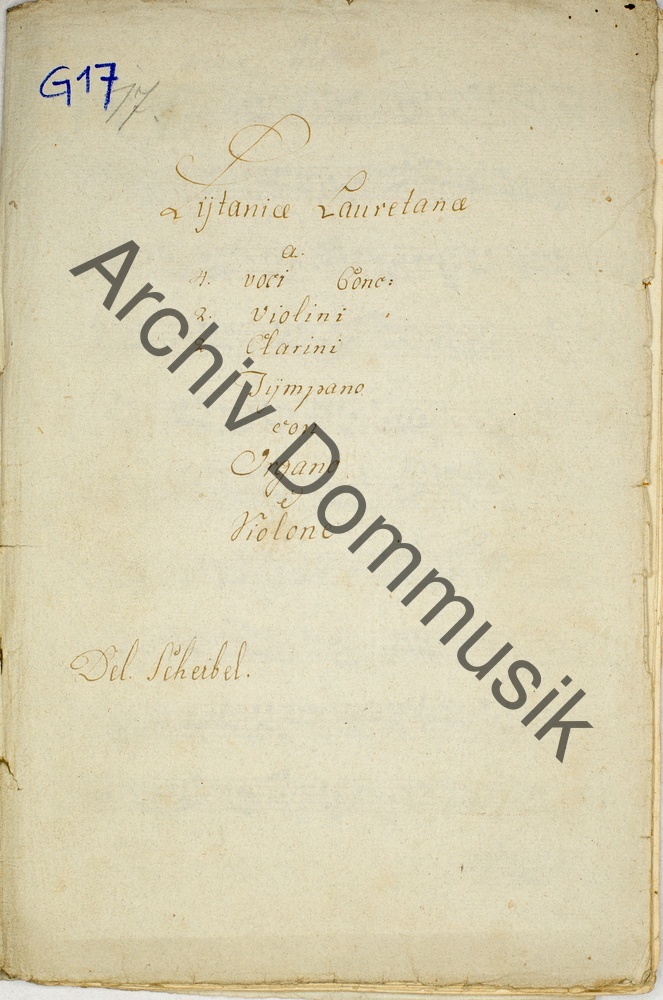 G17
17.
Lijtaniæ Lauretanæ
a.
4. voci Conc:
2. Violini
Clarini
Tijmpano
con
Organo
e
Violone
Del. Scheibel.
Archiv Dommusik